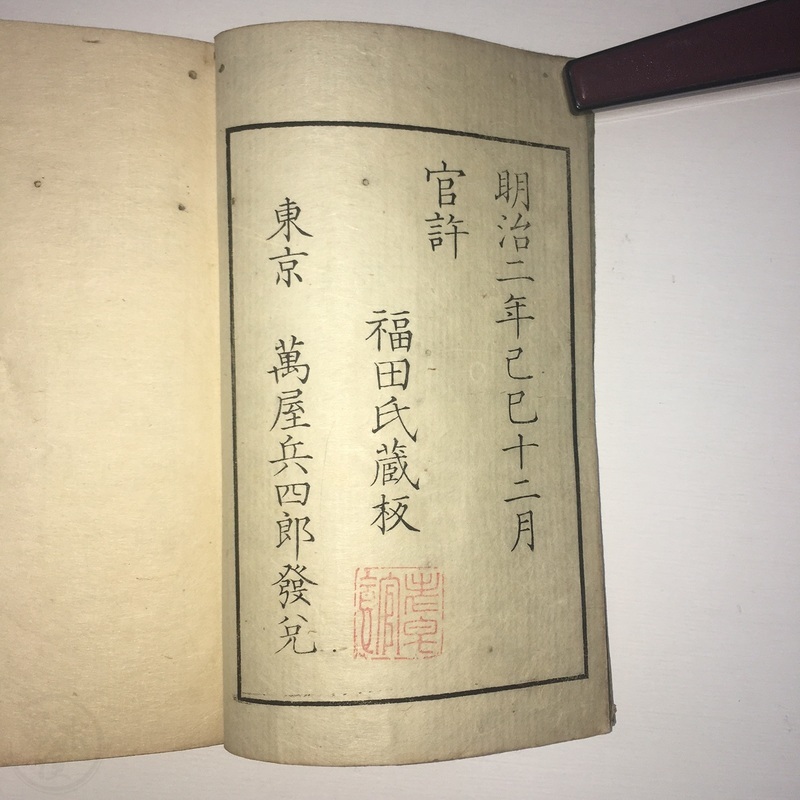 明治二年己巳十二月
官許
福田氏蔵板
東京 萬屋兵四郎發兌